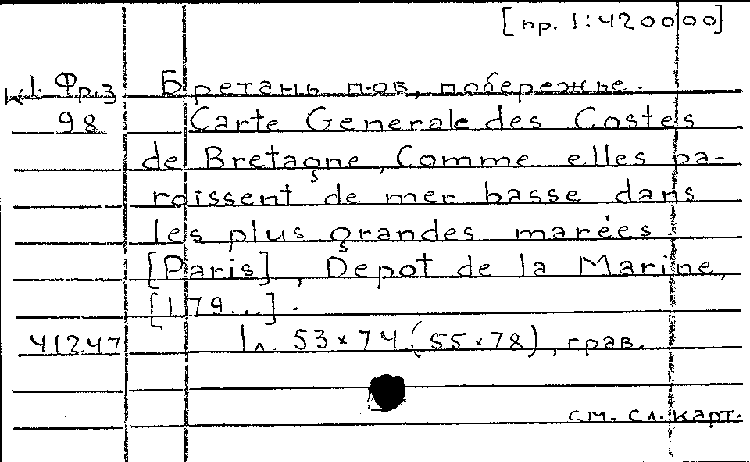 [пр. 1:420000]
К1. Фр.3 Бретань п-ов, побережье.
98 Carte Generale des Costes
de Bretagne, Comme elles pa-
roissent de mer basse dans
les plus grandes marées
[Paris], Depot de la Marine,
[179..].
41247 1л. 53×74 (55×78), грав.
см. сл. карт.